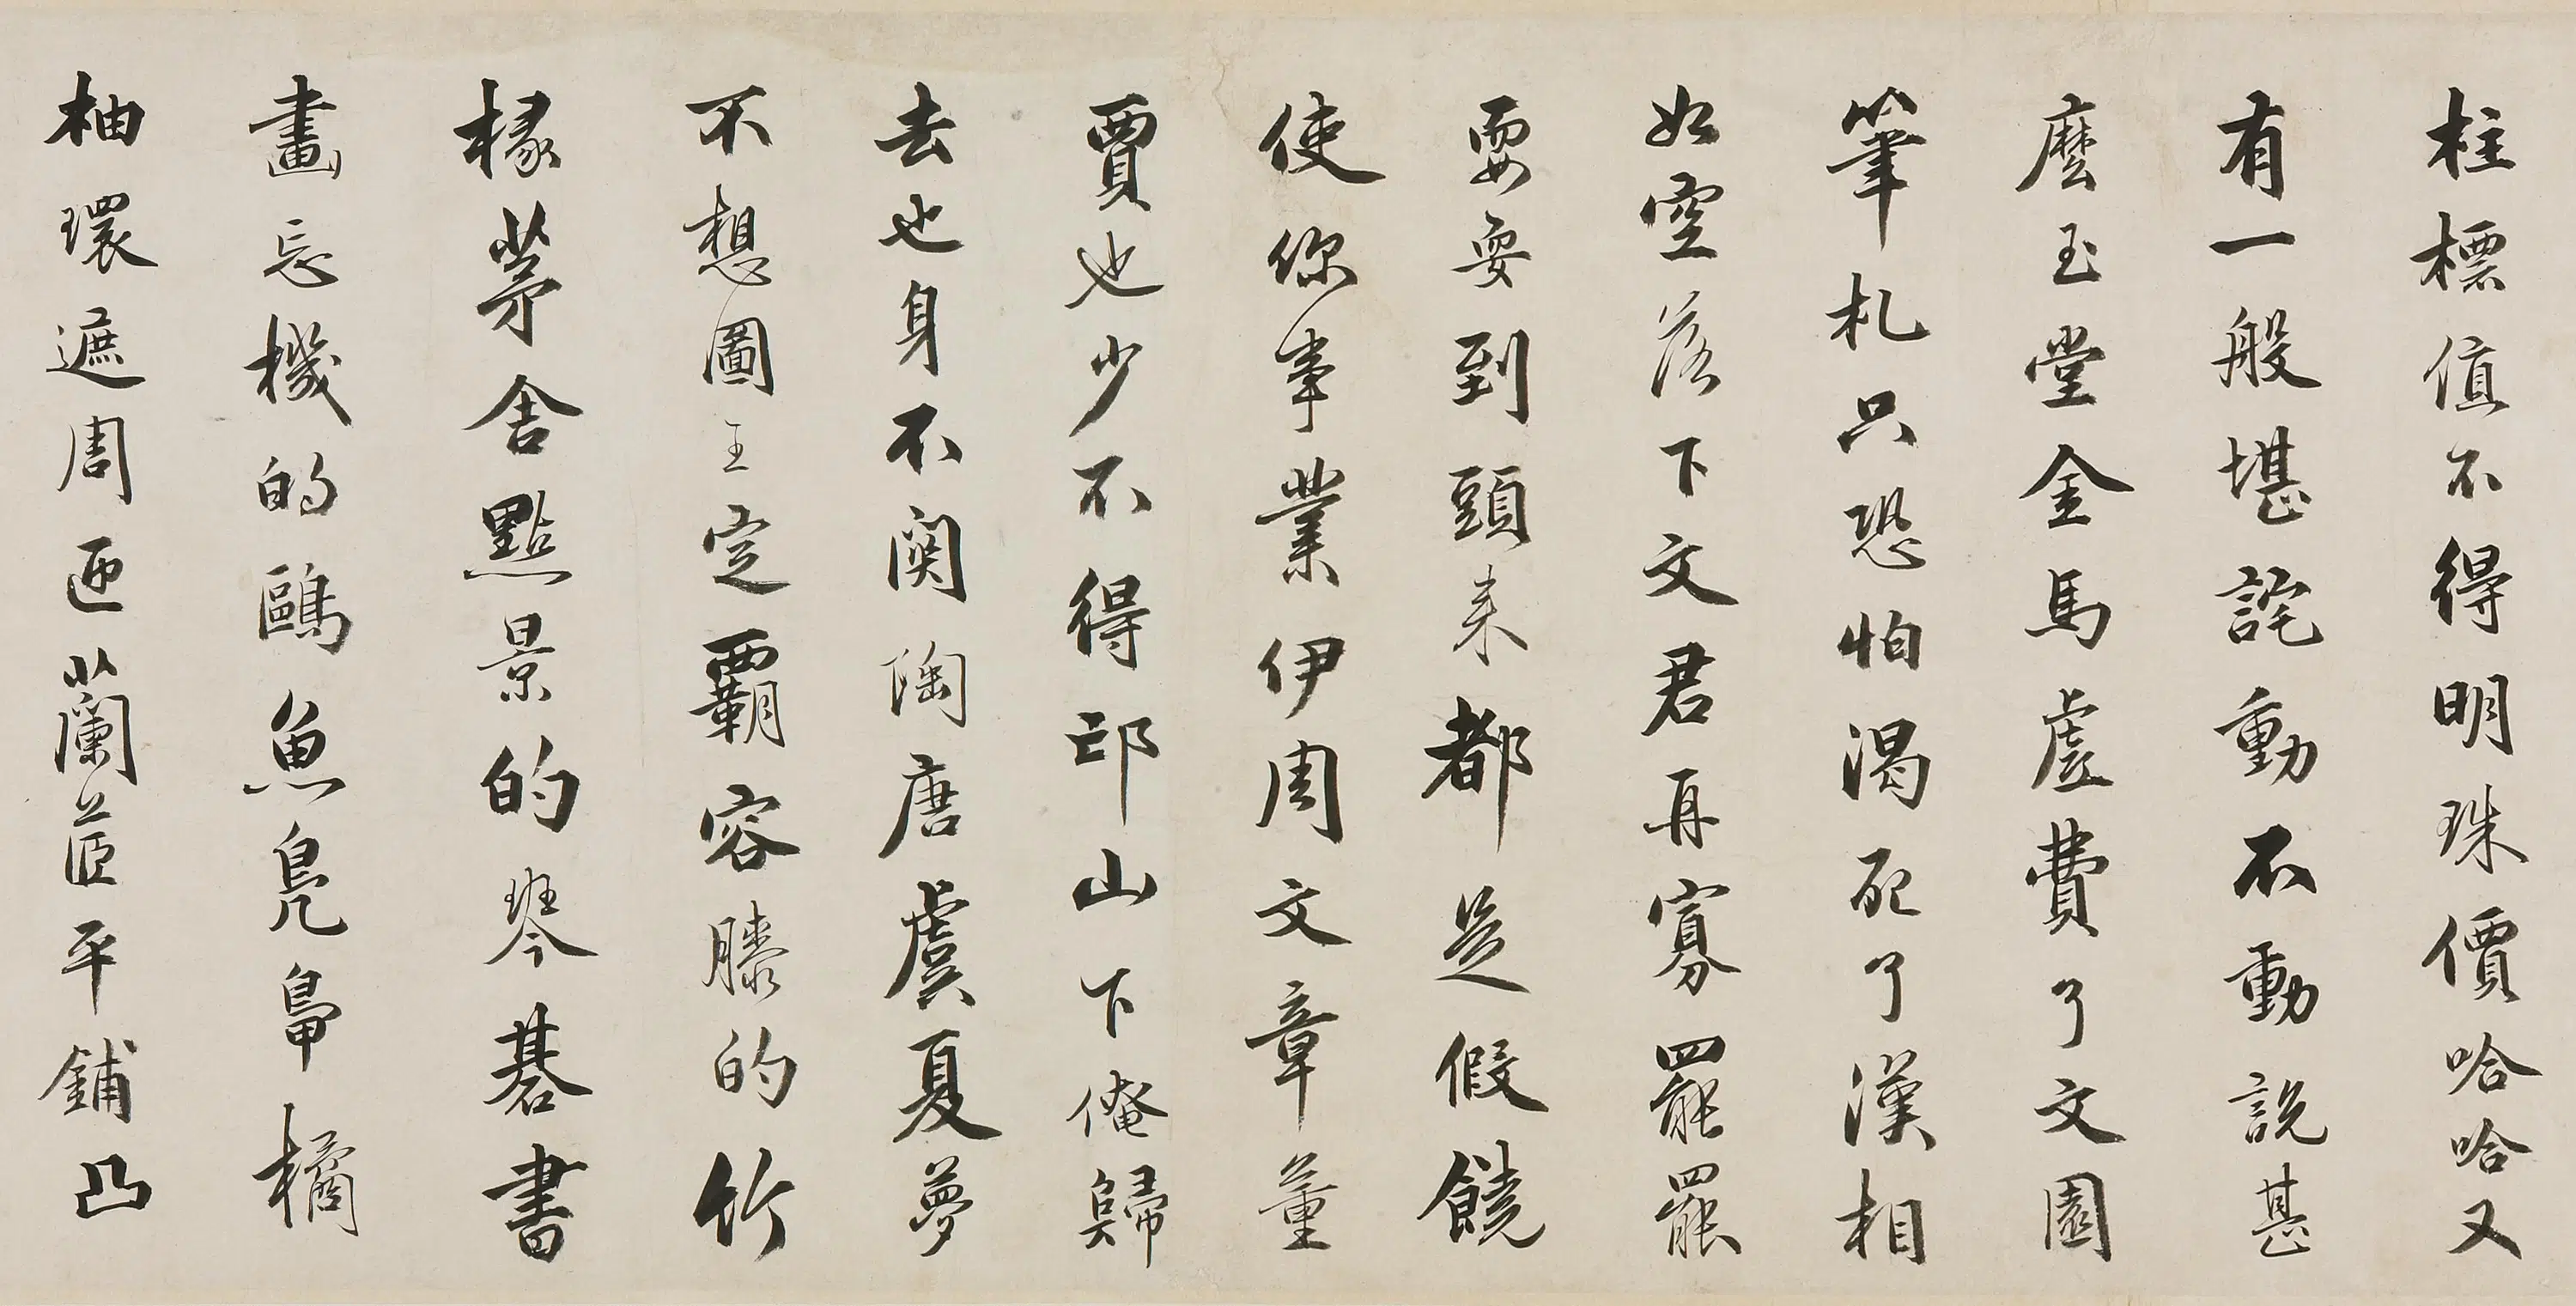 柱標值不得明珠價哈哈又
有一般堪詫動不動說甚
麼玉堂金馬虛費了文園
筆札只恐怕渴死了漢相
如空落下文君再寡罷罷
耍耍到頭来都是假饒
使你事業伊周文章董
賈也少不得邙山下俺歸
去也身不関陶唐虞夏夢
不想圖王定覇容膝的竹
椽茅舍點景的琴碁書
畫忘機的鷗魚鳧鼻橘
柚環遮周匝蘭茝平鋪凸